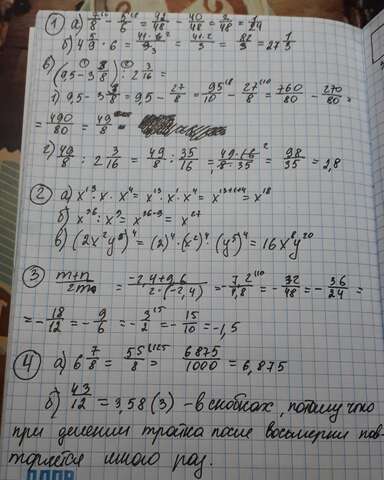 ① а) 7/8 - 5/6 = 42/48 - 40/48 = 2/48 = 1/24
б) 4 5/9 · 6 = 41·6²/9₃ = 41·2/3 = 82/3 = 27 1/3
в) (9,5 - 3 3/8) : 2 3/16
1) 9,5 - 3 3/8 = 9,5 - 27/8 = 95/10 - 27/8 = 760/80 - 270/80 =
= 490/80 = 49/8
2) 49/8 : 2 3/16 = 49/8 : 35/16 = 49·16²/8·35 = 98/35 = 2,8
② а) x¹³ · x · x⁴ = x¹³ · x¹ · x⁴ = x¹³⁺¹⁺⁴ = x¹⁸
б) x³⁶ : x⁹ = x³⁶⁻⁹ = x²⁷
в) (2x²y⁵)⁴ = (2)⁴ · (x²)⁴ · (y⁵)⁴ = 16x⁸y²⁰
③ m+n/2m = -2,4+9,6/2·(-2,4) = -7,2/4,8 = -72/48 = -36/24 =
= -18/12 = -9/6 = -3/2 = -15/10 = -1,5
④ а) 6 7/8 = 55/8 = 6875/1000 = 6,875
б) 43/12 = 3,58(3) - в скобках, потому что
при делении тройка после восьмерки пов-
торяется много раз.